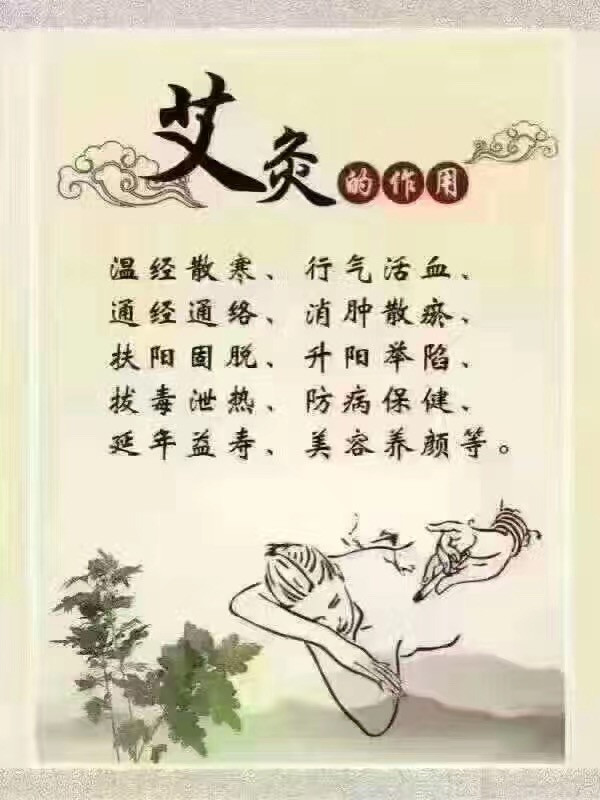 艾灸的作用
温经散寒、行气活血、
通经通络、消肿散瘀、
扶阳固脱、升阳举陷、
拔毒泄热、防病保健、
延年益寿、美容养颜等。